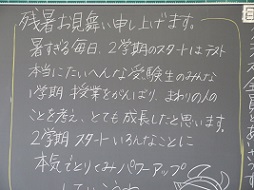 残暑お見舞い申し上げます。
暑すぎる毎日、2学期のスタートはテスト
本当にたいへんな受験生のみんな
1学期 授業をがんばり、まわりの人の
ことを考え、とても成長したと思います。
2学期 スタートいろんなことに
本気でとりくみパワーアップ
していこうね